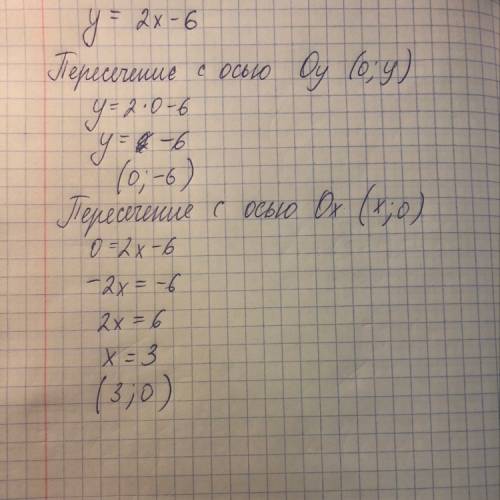 y = 2x-6
Пересечение с осью Oy (0; y)
y=2·0-6
y= -6
(0; -6)
Пересечение с осью Ox (x; 0)
0=2x-6
-2x= -6
2x = 6
x = 3
(3; 0)